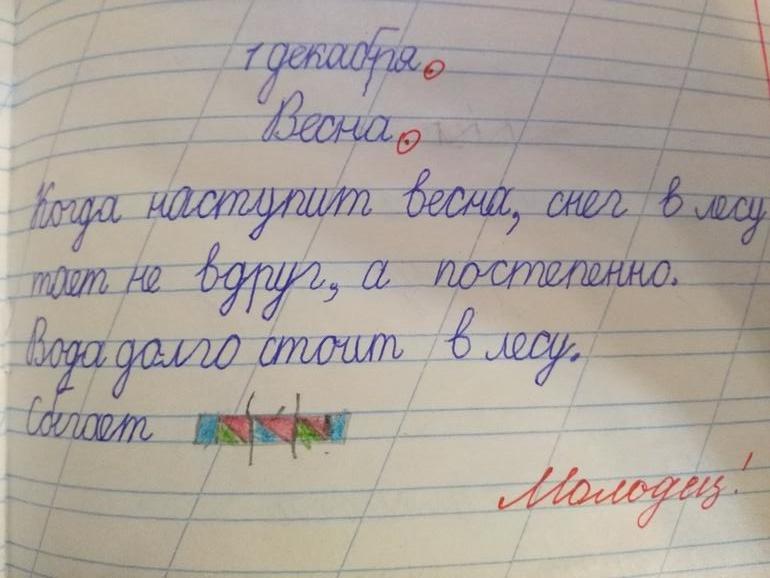 1 декабря.
Весна.
Когда наступит весна, снег в лесу
тает не вдруг, а постепенно.
Вода долго стоит в лесу.
Сбегает
Молодец!